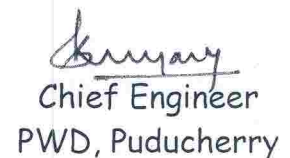 Chief Engineer
PWD, Puducherry